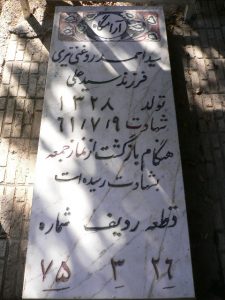 آرامگاه
سید احمد روضتی تبری
فرزند سید علی
تولد ۱۳۲۸
شهادت ۶۱/۷/۹
هنگام بازگشت از نماز جمعه
بشهادت رسیده است
قطعه ردیف شماره
۲۶ ۳ ۷۵